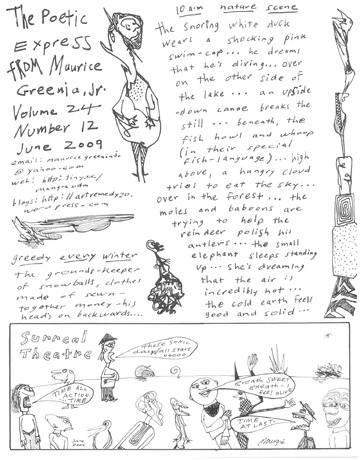 The Poetic
Express
FROM Maurice
Greenia, Jr.
Volume 24
Number 12
June 2009
email: mauricegreeniajr
@yahoo.com
web: http:tiny.cc/
blogs: http://artremedy20.
wordpress.com
greedy every winter
The grounds-keeper
of snowballs, clothes
made of sewn-
together money-his
heads on backwards....
10 a.m. nature scene
The snoring white duck
wears a shocking pink
swim-cap... he dreams
that he's diving... over
on the other side of
the lake... an upside
-down canoe breaks the
still... beneath, the
fish howl and whoop
(in their special
fish-language)... high
above, a hungry cloud
tries to eat the sky...
over in the forest... the
moles and baboons are
trying to help the
reindeer polish his
antlers... the small
elephant sleeps standing
up... She's dreaming
that the air is
incredibly hot...
the cold earth feels
good and solid...
Surreal
Theatre
These sonic
TIME ALL
ACTION
TIME
Breath sweet
breath-I
feel alive
TIME
AT LAST
June
2009
Maugré